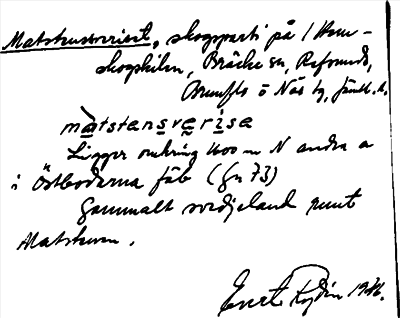 Matstensveriset, skogsparti på
skogskilen, Bräcke sn, Refsunds,
Brunflo o Näs tg, Jämtl. l.
matstensverisa
Ligger omkring 1100 m N andra a
i Östboderna fäb (Gu 73)
Gammalt svedjeland runt
Matstenen.
Evert Rydin 1946.